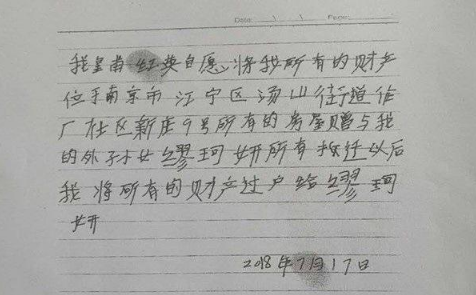 Date / /
我皇甫红英自愿将我所有的财产
位于南京市江宁区汤山街道作
厂社区新庄9号所有的房屋赠与我
的外孙女缪珂妍所有拆迁以后
我将所有的财产过户给缪珂
妍
2018年7月17日